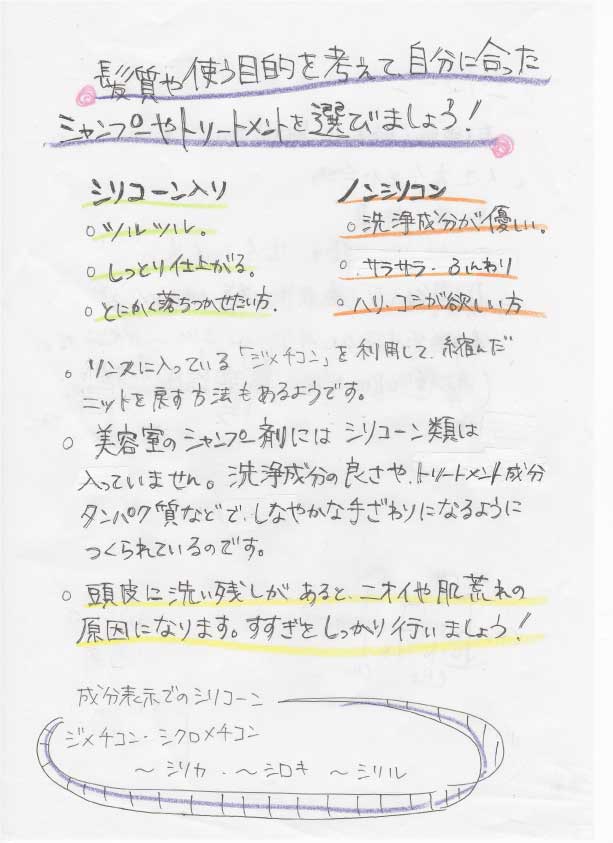 髪質や使う目的を考えて、自分に合った
シャンプーやトリートメントを選びましょう!
シリコーン入り
○ツルツル。
○しっとり仕上がる。
○とにかく落ちつかせたい方.
ノンシリコン
○洗浄成分が優しい。
○サラサラ・ふんわり
○ハリ・コシが欲しい方
○リンスに入っている「ジメチコン」を利用して、縮んだ
ニットを戻す方法もあるようです。
○美容室のシャンプー剤には シリコーン類は
入っていません。洗浄成分の良さや、トリートメント成分
タンパク質などで、しなやかな手ざわりになるように
つくられているのです。
○頭皮に洗い残しがあると、ニオイや肌荒れの
原因になります。すすぎをしっかり行いましょう!
成分表示でのシリコーン
ジメチコン・シクロメチコン
~シリカ・~シロキ ~シリル